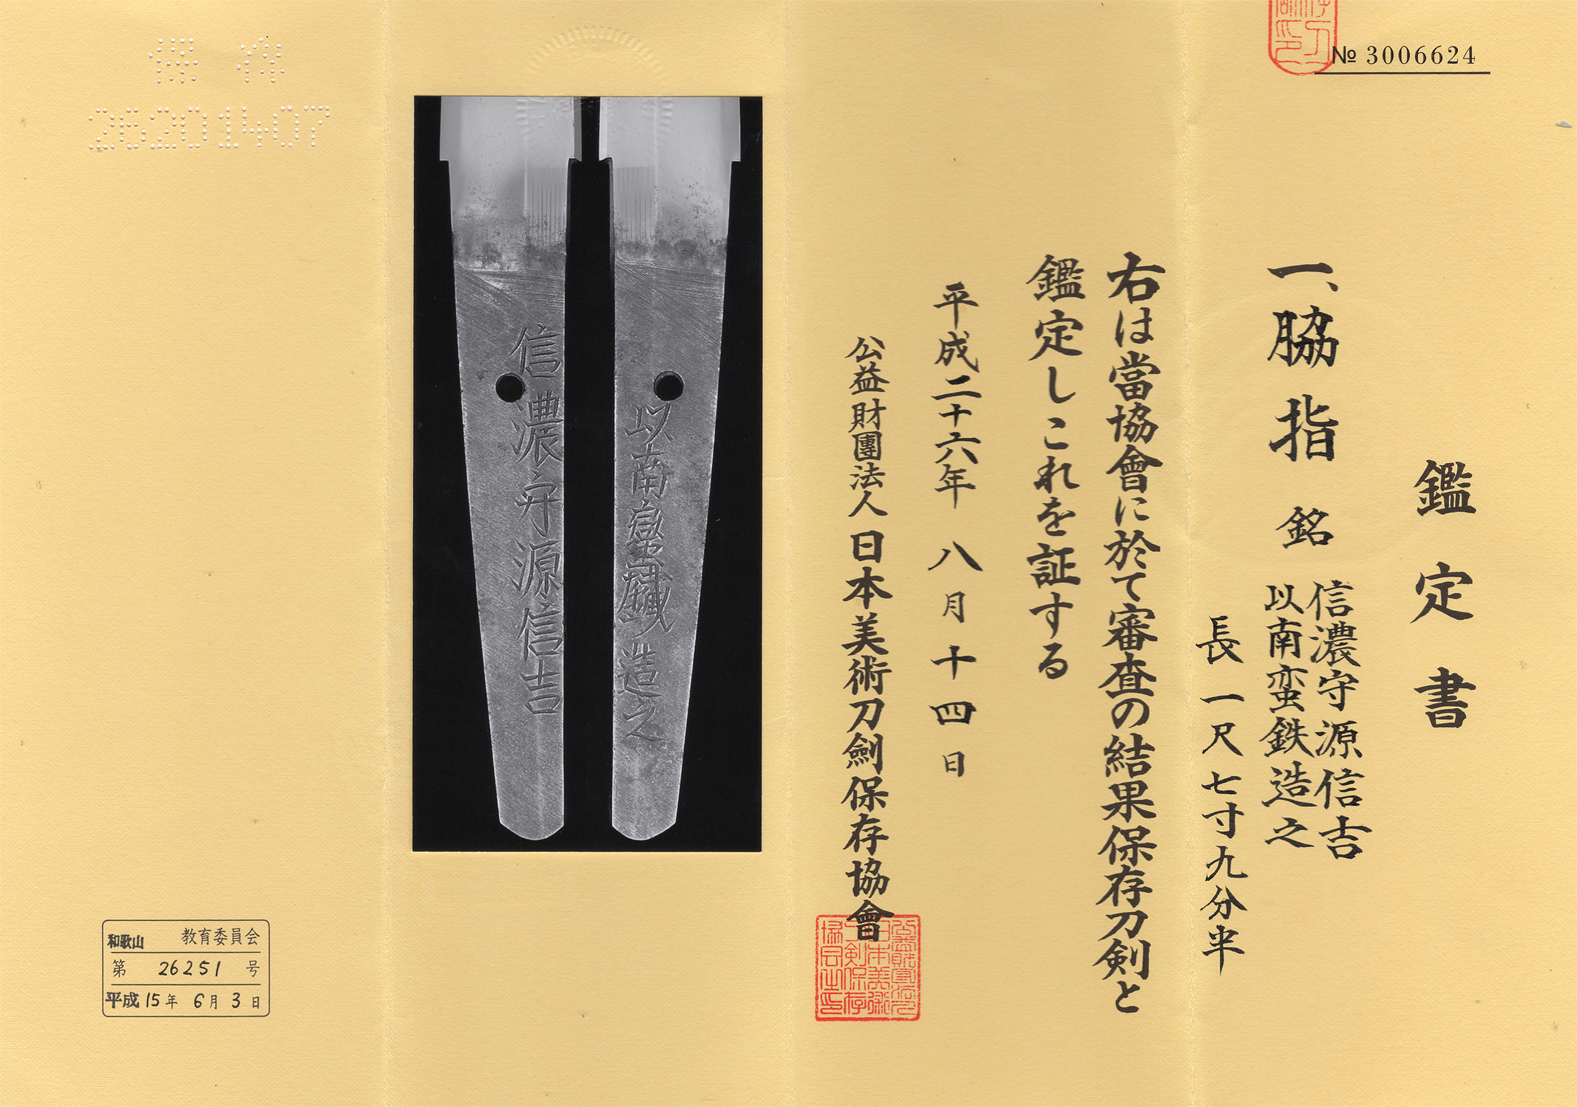 № 3006624
鑑定書
一、脇指 銘 信濃守源信吉
以南蛮鉄造之
長一尺七寸九分半
右は當協會に於て審査の結果保存刀剣と
鑑定しこれを証する
平成二十六年 八月十四日
公益財團法人日本美術刀劍保存協會
以南蠻鐵造之
信濃守源信吉
保存
26201407
和歌山 教育委員会
第 26251 号
平成15年 6月 3日